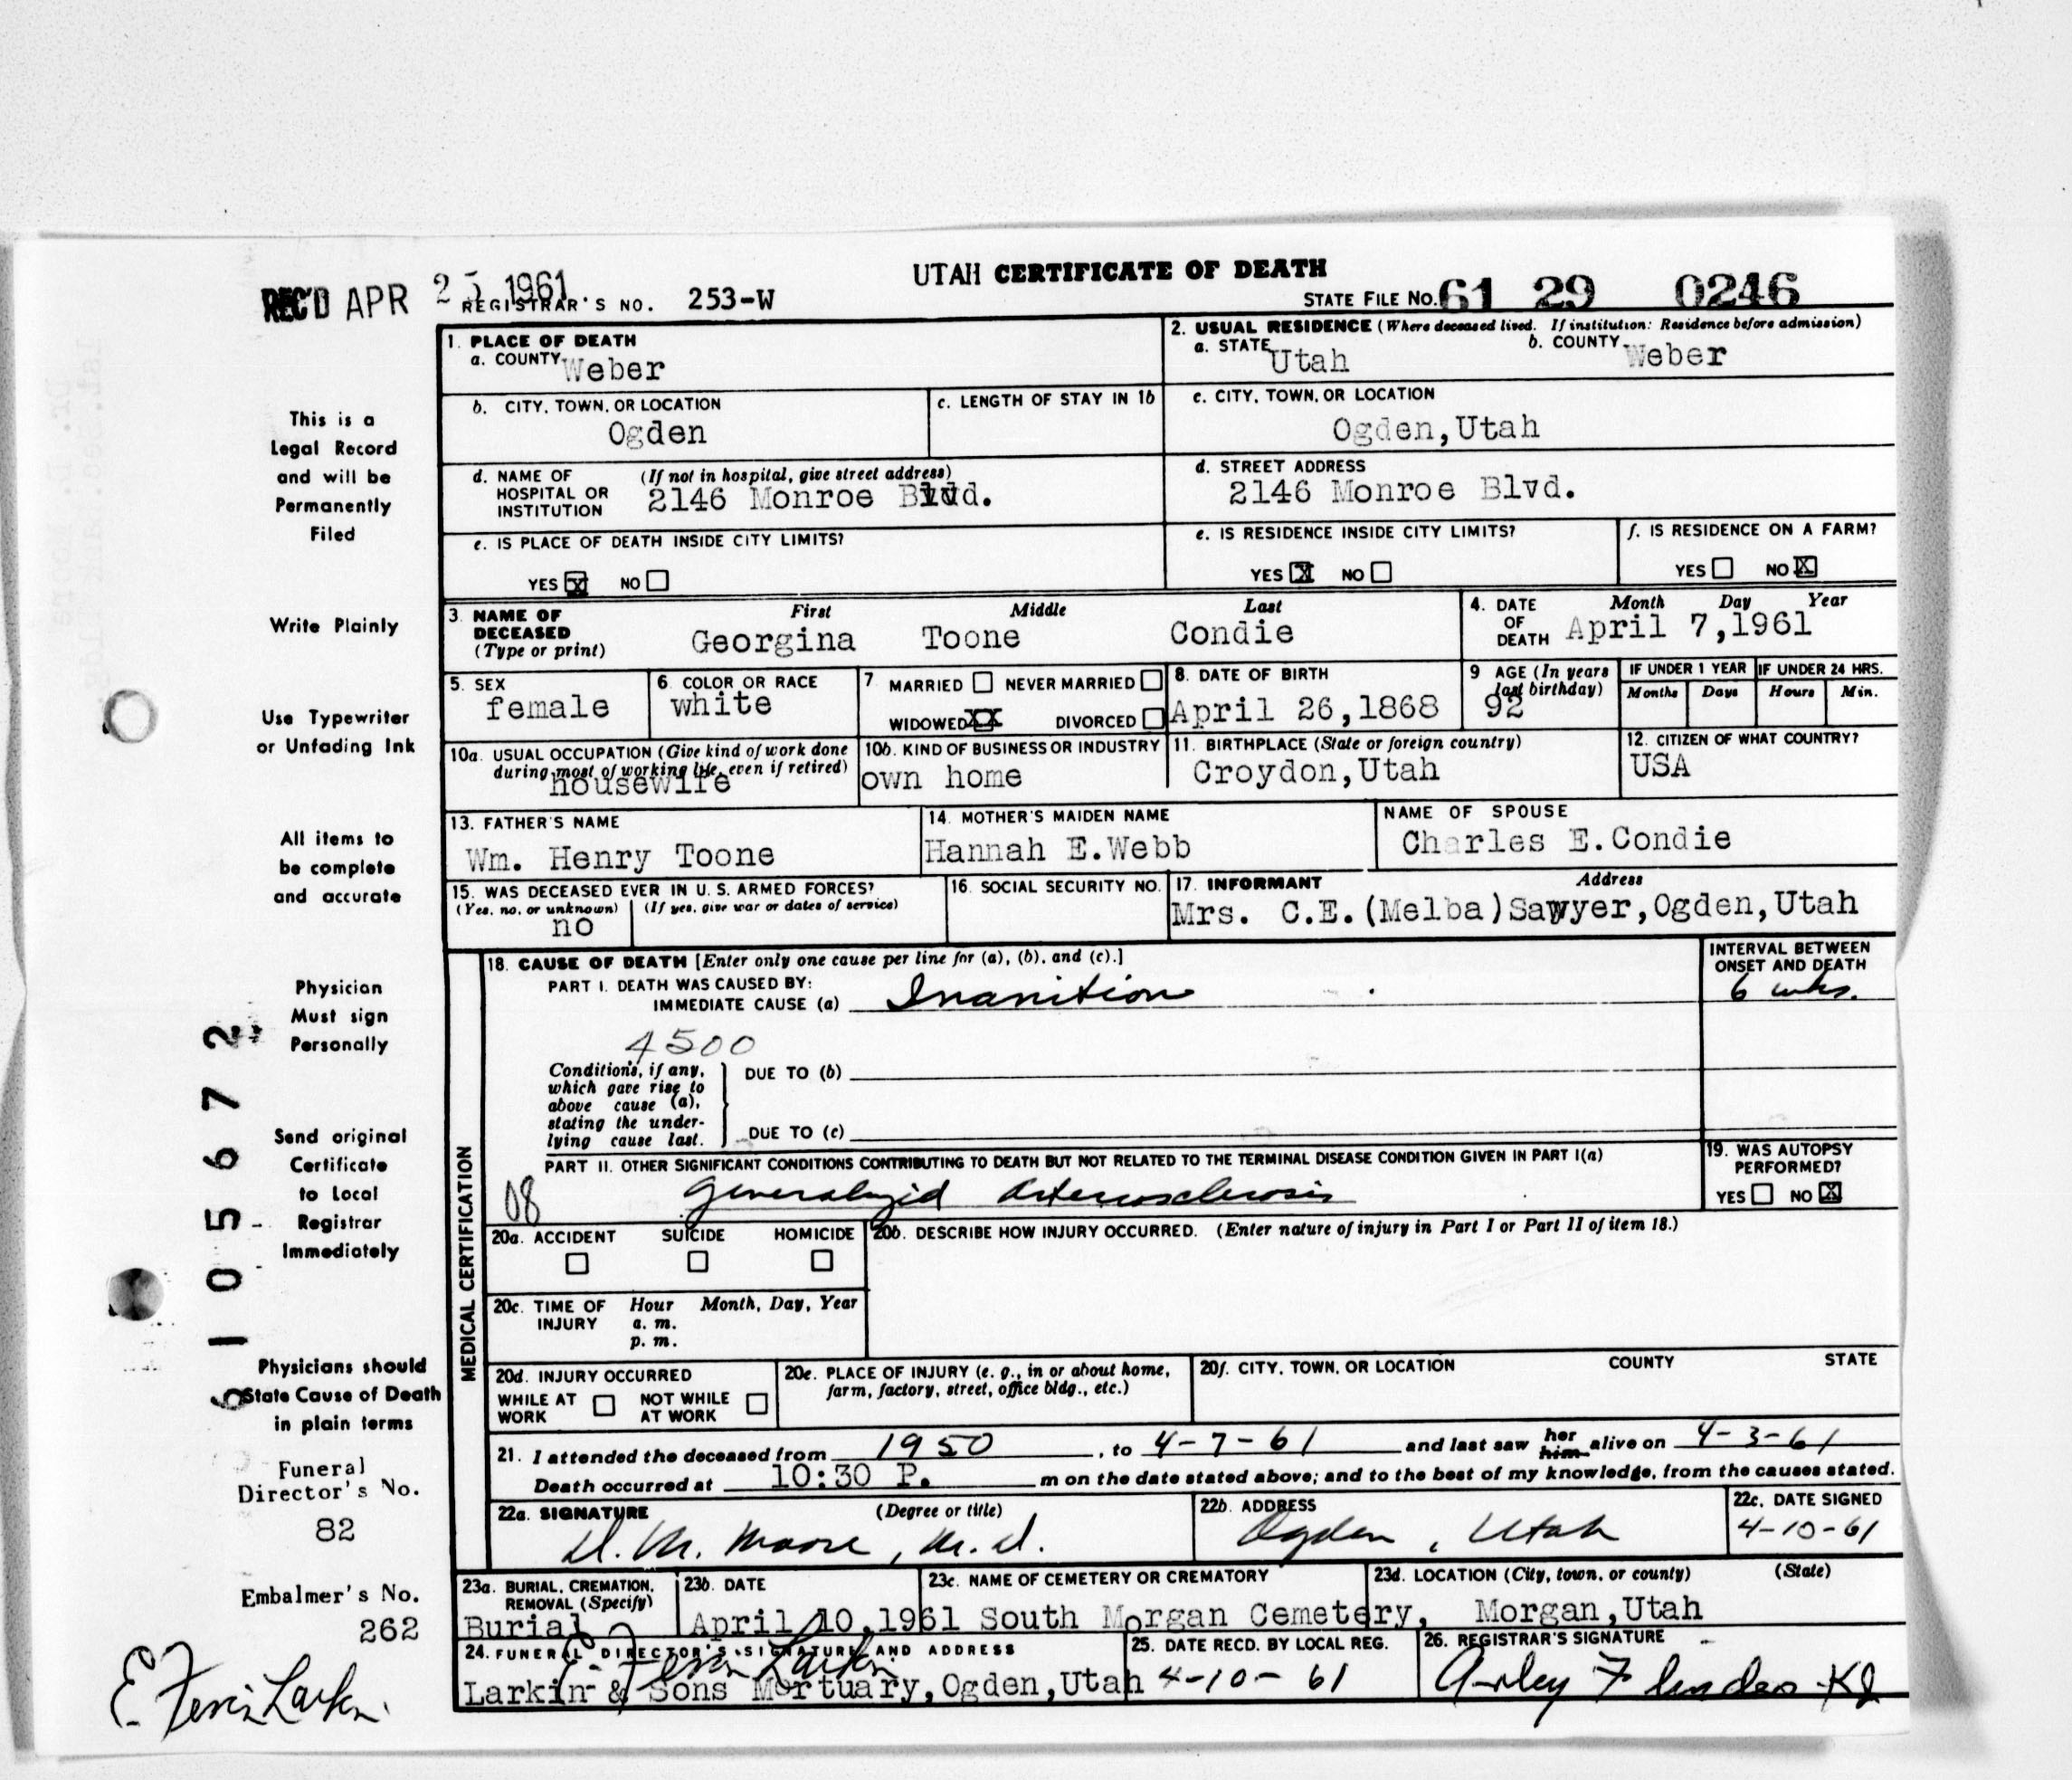 UTAH CERTIFICATE OF DEATH
REC'D APR 25 1961
REGISTRAR'S NO. 253-W
STATE FILE NO. 61 29 0246
This is a
Legal Record
and will be
Permanently
Filed
Write Plainly
Use Typewriter
or Unfading Ink
All items to
be complete
and accurate
Physician
Must sign
Personally
Send original
Certificate
to Local
Registrar
Immediately
Physicians should
State Cause of Death
in plain terms
Funeral
Director's No.
82
Embalmer's No.
262
6105672
1. PLACE OF DEATH
a. COUNTY Weber
2. USUAL RESIDENCE (Where deceased lived. If institution: Residence before admission)
a. STATE Utah
b. COUNTY Weber
b. CITY, TOWN, OR LOCATION
Ogden
c. LENGTH OF STAY IN 1b
c. CITY, TOWN, OR LOCATION
Ogden,Utah
d. NAME OF HOSPITAL OR INSTITUTION (If not in hospital, give street address)
2146 Monroe Blvd.
d. STREET ADDRESS
2146 Monroe Blvd.
e. IS PLACE OF DEATH INSIDE CITY LIMITS?
YES X NO
e. IS RESIDENCE INSIDE CITY LIMITS?
YES X NO
f. IS RESIDENCE ON A FARM?
YES NO X
3. NAME OF DECEASED (Type or print)
First Middle Last
Georgina Toone Condie
4. DATE OF DEATH Month Day Year
April 7,1961
5. SEX
female
6. COLOR OR RACE
white
7 MARRIED NEVER MARRIED
WIDOWED XX DIVORCED
8. DATE OF BIRTH
April 26,1868
9 AGE (In years last birthday)
92
IF UNDER 1 YEAR IF UNDER 24 HRS.
Months Days Hours Min.
10a. USUAL OCCUPATION (Give kind of work done during most of working life, even if retired)
housewife
10b. KIND OF BUSINESS OR INDUSTRY
own home
11. BIRTHPLACE (State or foreign country)
Croydon,Utah
12. CITIZEN OF WHAT COUNTRY?
USA
13. FATHER'S NAME
Wm. Henry Toone
14. MOTHER'S MAIDEN NAME
Hannah E.Webb
NAME OF SPOUSE
Charles E.Condie
15. WAS DECEASED EVER IN U. S. ARMED FORCES?
(Yes, no, or unknown) (If yes, give war or dates of service)
no
16. SOCIAL SECURITY NO.
17. INFORMANT Address
Mrs. C.E.(Melba)Sawyer,Ogden,Utah
MEDICAL CERTIFICATION
18. CAUSE OF DEATH [Enter only one cause per line for (a), (b), and (c).]
INTERVAL BETWEEN ONSET AND DEATH
PART I. DEATH WAS CAUSED BY:
IMMEDIATE CAUSE (a) Inanition 6 wks.
4500
Conditions, if any, which gave rise to above cause (a), stating the underlying cause last.
DUE TO (b)
DUE TO (c)
PART II. OTHER SIGNIFICANT CONDITIONS CONTRIBUTING TO DEATH BUT NOT RELATED TO THE TERMINAL DISEASE CONDITION GIVEN IN PART I(a)
08 generalyzid arteriosclerosis
19. WAS AUTOPSY PERFORMED?
YES NO X
20a. ACCIDENT SUICIDE HOMICIDE
20b. DESCRIBE HOW INJURY OCCURRED. (Enter nature of injury in Part I or Part II of item 18.)
20c. TIME OF INJURY Hour Month, Day, Year
a. m.
p. m.
20d. INJURY OCCURRED
WHILE AT WORK NOT WHILE AT WORK
20e. PLACE OF INJURY (e. g., in or about home, farm, factory, street, office bldg., etc.)
20f. CITY, TOWN, OR LOCATION COUNTY STATE
21. I attended the deceased from 1950, to 4-7-61 and last saw her him alive on 4-3-61
Death occurred at 10:30 P. m on the date stated above; and to the best of my knowledge, from the causes stated.
22a. SIGNATURE (Degree or title)
D. M. Moore, M.D.
22b. ADDRESS
Ogden, Utah
22c. DATE SIGNED
4-10-61
23a. BURIAL, CREMATION, REMOVAL (Specify)
Burial
23b. DATE
April 10,1961
23c. NAME OF CEMETERY OR CREMATORY
South Morgan Cemetery,
23d. LOCATION (City, town, or county) (State)
Morgan,Utah
24. FUNERAL DIRECTOR'S SIGNATURE AND ADDRESS
Larkin & Sons Mortuary,Ogden,Utah
25. DATE RECD. BY LOCAL REG.
4-10-61
26. REGISTRAR'S SIGNATURE